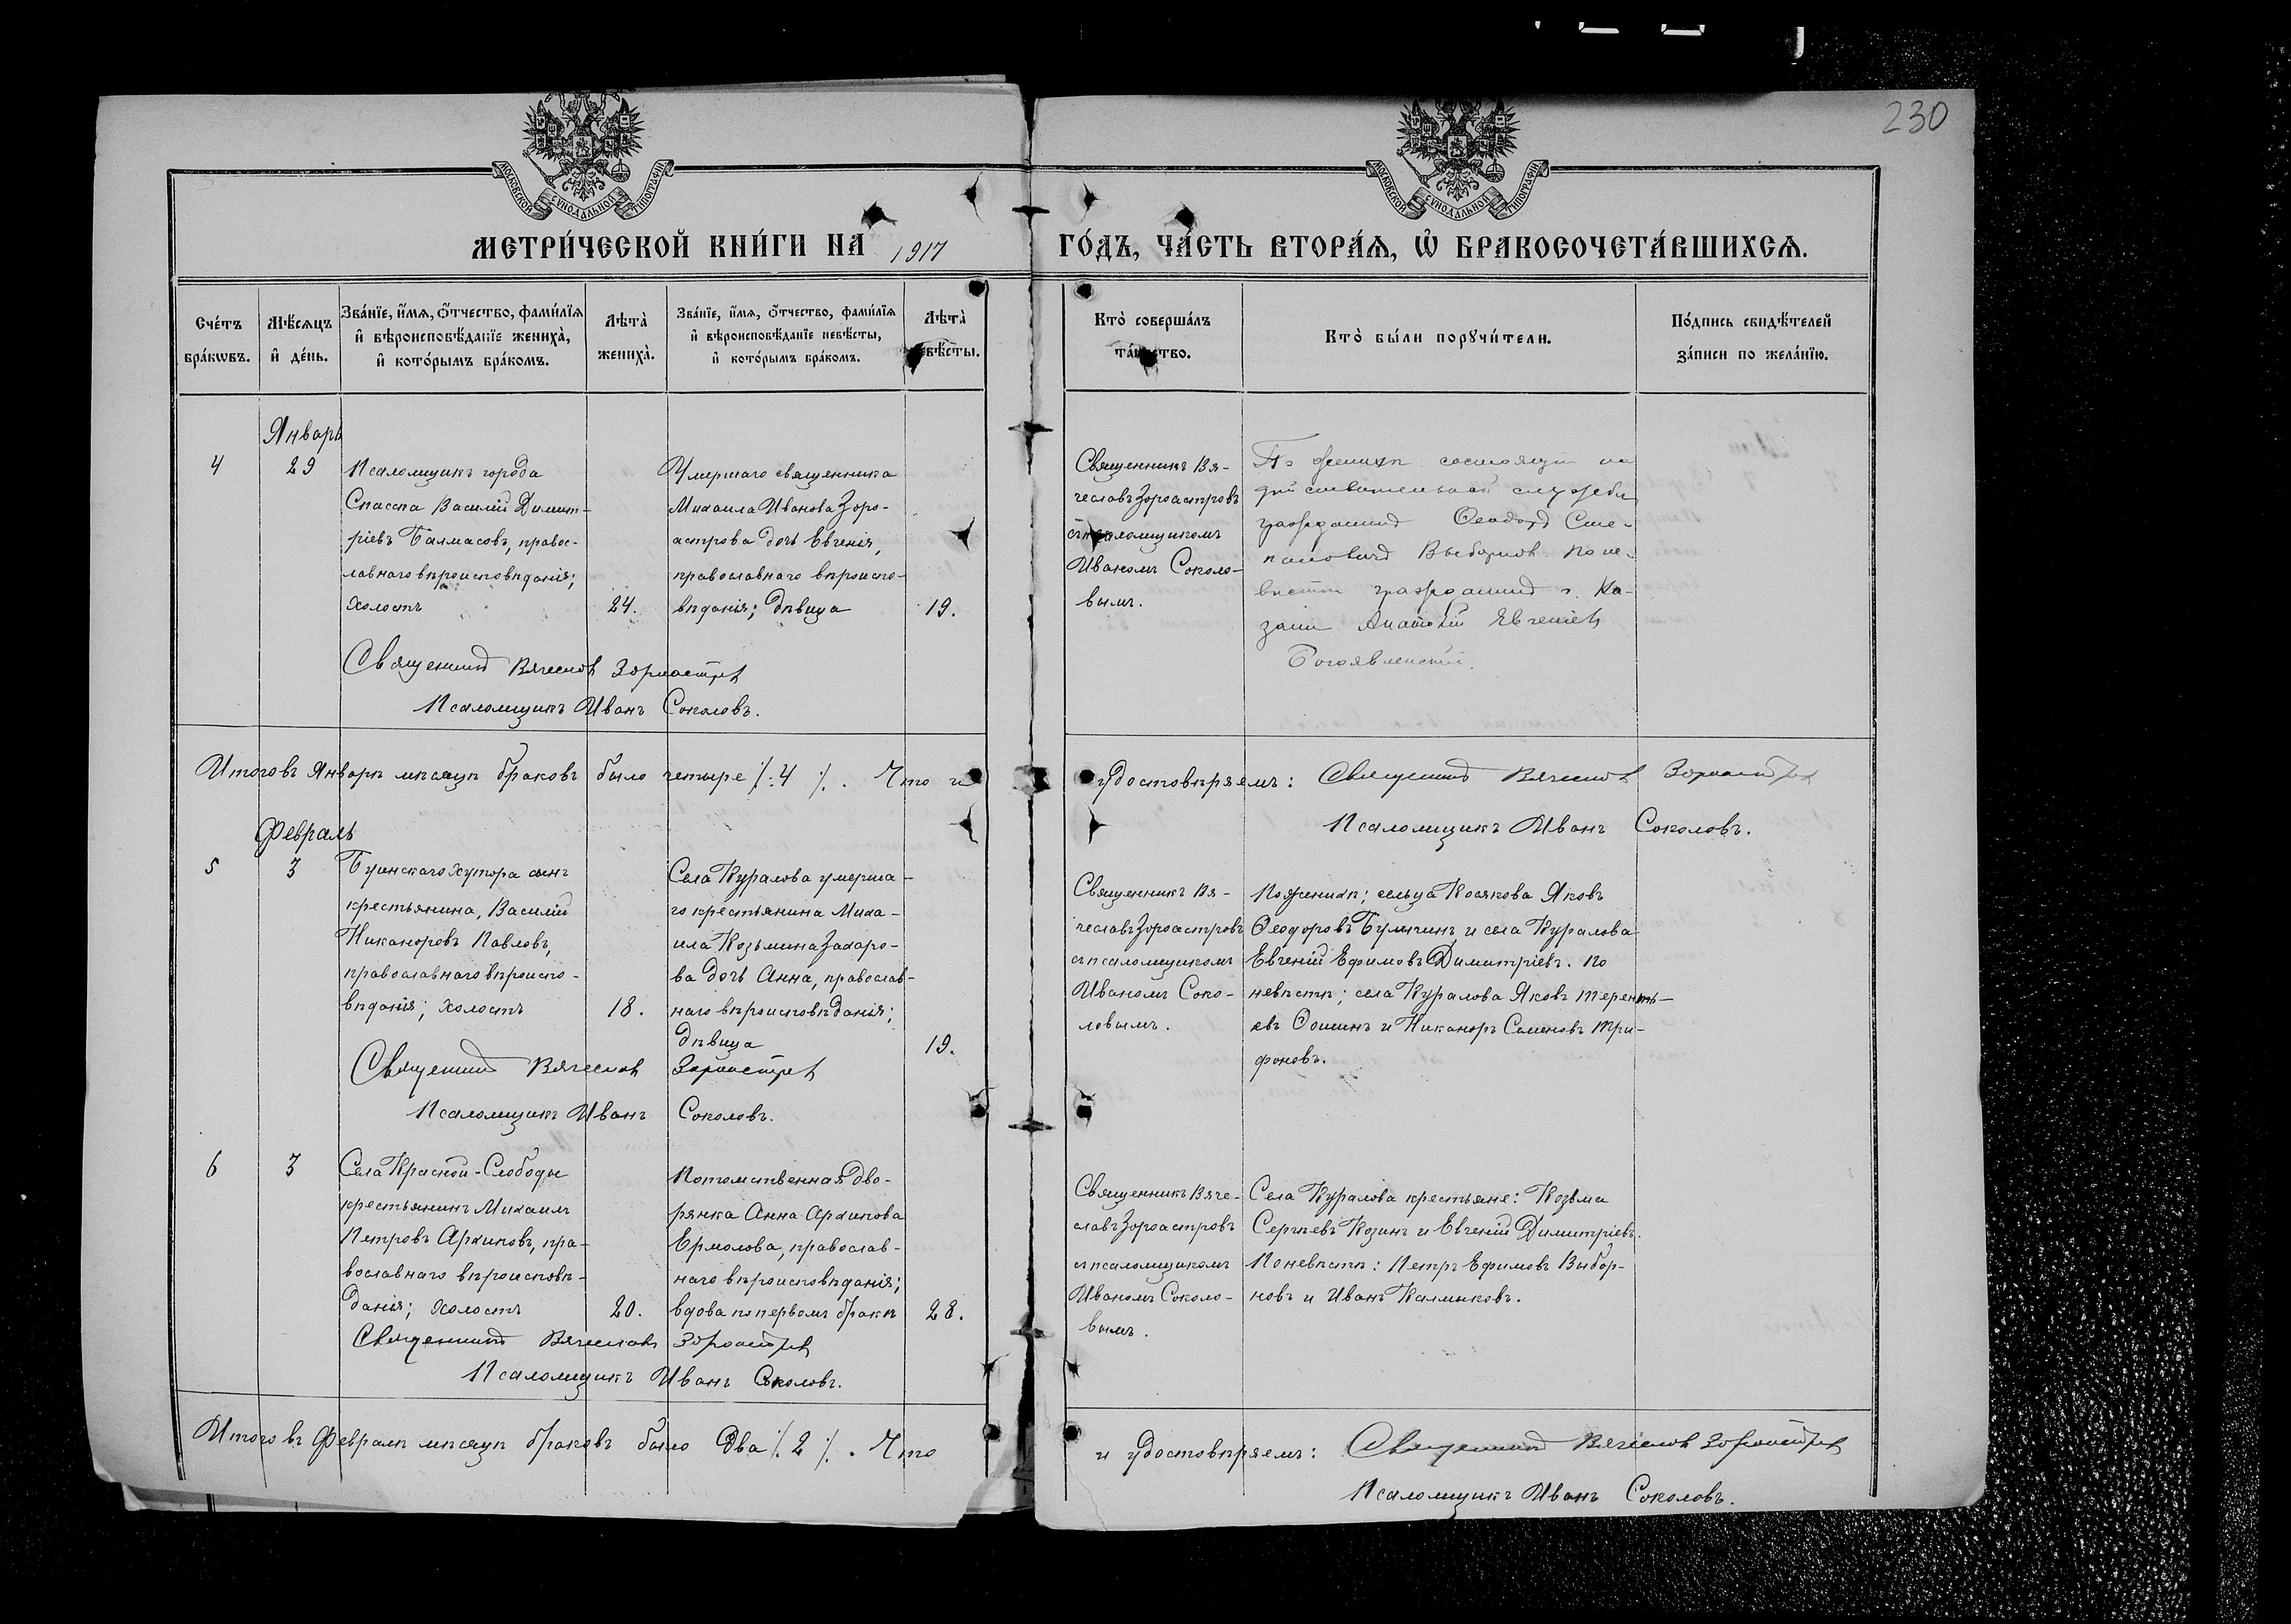 230
МОСКОВСКОЙ СѴНОДАЛЬНОЙ ТИПОГРАФІИ
МОСКОВСКОЙ СѴНОДАЛЬНОЙ ТИПОГРАФІИ
МЕТРИ́ЧЕСКОЙ КНИ́ГИ НА 1917
ГО́ДЪ, ЧА́СТЬ ВТОРА́Ѧ, Ѡ҆ БРАКОСОЧЕТА́ВШИХСѦ.
Сче́тъ
бра́кѡвъ.
Мѣ́сѧцъ
и҆ де́нь.
Зва́нїе, и҆́мѧ, ѻ҆́тчество, фами́лїѧ
и҆ вѣроисповѣ́данїе жениха̀,
и҆ кото́рымъ бра́комъ.
Лѣта̀
жениха̀.
Зва́нїе, и҆́мѧ, ѻ҆́тчество, фами́лїѧ
и҆ вѣроисповѣ́данїе невѣ́сты,
и҆ кото́рымъ бра́комъ.
Лѣта̀
невѣ́сты.
Кто̀ соверша́лъ
та́инство.
Кто̀ бы́ли порꙋчи́тели.
По́дпись свидѣ́телей
за́писи по жела́нїю.
Январь
4
29
Псаломщикъ города
Спасска Василій Димит-
ріевъ Балмасовъ, правос-
лавнаго вѣроисповѣданія;
холостъ
24.
Умершаго священника
Михаила Иванова Зоро-
астрова дочь Евгенія,
православнаго вѣроиспо-
вѣданія; дѣвица
19.
Священникъ Вя-
чеславъ Зороастровъ
съ псаломщикомъ
Иваномъ Соколо-
вымъ.
По женихѣ состоящій на
дѣйствительной службѣ
гражданинъ Ѳеодоръ Сте-
пановичъ Выборновъ. По не-
вѣстѣ гражданинъ г. Ка-
зани Анатолій Евгеніевъ
Богоявленскій.
Священникъ Вячеславъ Зороастровъ
Псаломщикъ Иванъ Соколовъ.
Итого въ Январѣ мѣсяцѣ браковъ было четыре /. 4 /. . Что и
удостовѣряемъ: Священникъ Вячеславъ Зороастровъ
Псаломщикъ Иванъ Соколовъ.
Февраль
5
3
Буинскаго хутора сынъ
крестьянина, Василій
Никаноровъ Павловъ,
православнаго вѣроиспо-
вѣданія; холостъ
18.
Села Куралова умерша-
го крестьянина Миха-
ила Козьмина Захаро-
ва дочь Анна, православ-
наго вѣроисповѣданія;
дѣвица
19.
Священникъ Вя-
чеславъ Зороастровъ
съ псаломщикомъ
Иваномъ Соко-
ловымъ.
По женихѣ; сельца Косякова Яковъ
Ѳеодоровъ Булычинъ и села Куралова
Евгеній Ефимовъ Димитріевъ. По
невѣстѣ; села Куралова Яковъ Терентъ-
евъ Ѳоминъ и Никаноръ Семеновъ Три-
фоновъ.
Священникъ Вячеславъ Зороастровъ
Псаломщикъ Иванъ Соколовъ.
6
3
Села Красной-Слободы
крестьянинъ Михаилъ
Петровъ Архиповъ, пра-
вославнаго вѣроисповѣ-
данія; холостъ
20.
Потомственная дво-
рянка Анна Архипова
Ермолова, православ-
наго вѣроисповѣданія;
вдова по первомъ бракѣ
28.
Священникъ Вяче-
славъ Зороастровъ
съ псаломщикомъ
Иваномъ Соколо-
вымъ.
Села Куралова крестьяне: Козьма
Сергѣевъ Козинъ и Евгеній Димитріевъ.
По невѣстѣ: Петръ Ефимовъ Выбор-
новъ и Иванъ Калмыковъ.
Священникъ Вячеславъ Зороастровъ
Псаломщикъ Иванъ Соколовъ.
Итого въ Февралѣ мѣсяцѣ браковъ было два /. 2 /. . Что
и удостовѣряемъ: Священникъ Вячеславъ Зороастровъ
Псаломщикъ Иванъ Соколовъ.